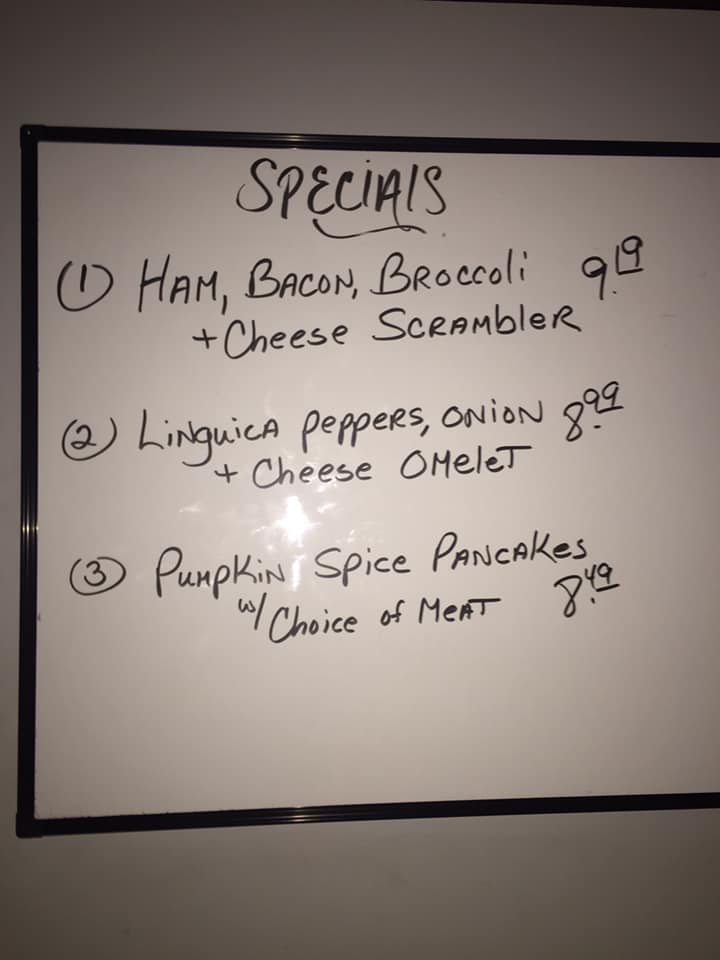 SPECIALS
(1) HAM, BACON, BROCCOLI 9.19
+ Cheese SCRAMBLER
(2) LINGUICA PEPPERS, ONION 8.99
+ Cheese OMELET
(3) PUMPKIN Spice PANCAKES
w/ Choice of MEAT 8.49